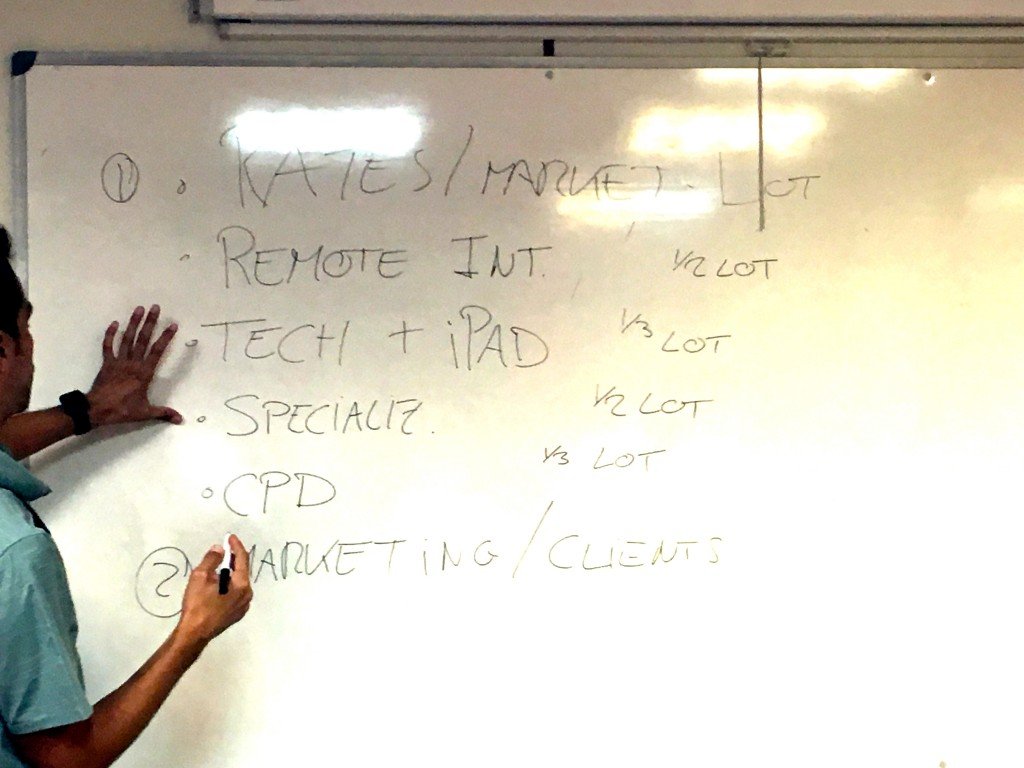 ① • RATES/MARKET. LOT
• REMOTE INT. 1/2 LOT
• TECH + iPAD 1/3 LOT
• SPECIALIZ. 1/2 LOT
• CPD 1/3 LOT
② MARKETING/CLIENTS